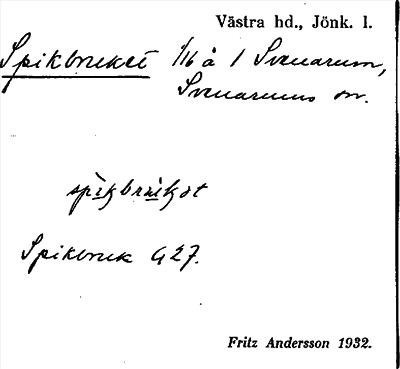 Västra hd., Jönk. l.
Spikbruket 1/16 å 1 Svenarum,
Svenarums sn.
spìkbrùkət
Spikbruk G 27.
Fritz Andersson 1932.